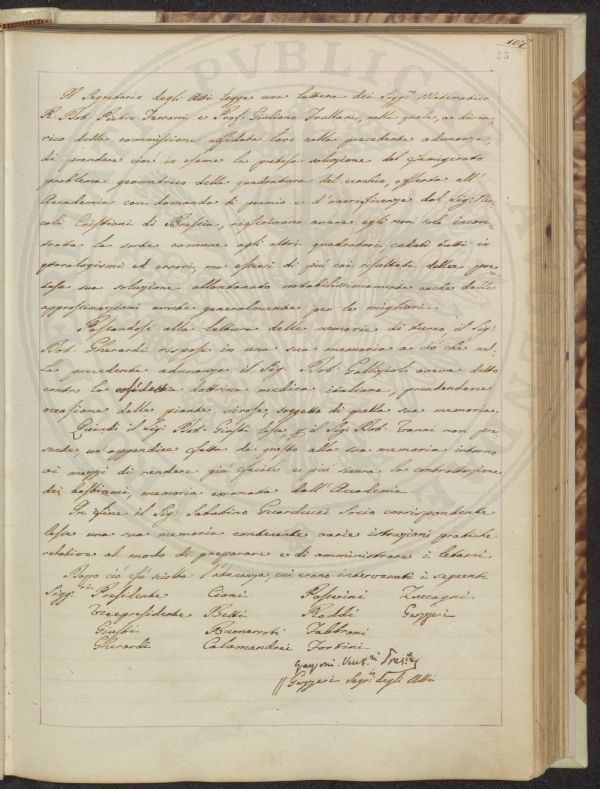 107
55
Il Segretario degli Atti legge una lettera dei Sigg.ri Matematici
R. Dot. Pietro Ferroni e Prof. Giuliano Frullani, nella quale, a di
rico della commissione affidata loro nella precedente adunanza,
di prendere cioè in esame la pretesa soluzione del famigerato
problema geometrico della quadratura del cerchio, offerta all'
Accademia con domanda di premio e d'onorificenza dal Sig. Ni-
colò Cristiani di Brescia, riferiscono avere egli non solo incon-
trata la sorte comune agli altri quadratori, caduti tutti in
paralogismi ed errori, ma essersi di più coi resultati della pre-
tesa sua soluzione allontanato notabilissimamente anche dalle
approssimazioni avute generalmente per le migliori.
Passandosi alla lettura delle memorie di turno il Sig.
Dot. Gherardi rispose in una sua memoria a ciò che nel-
la precedente adunanza il Sig. Dot. aveva detto
contro la cosidetta dottrina medica italiana, prendendone
occasione dalle piante virose, soggetto di quella sua memoria.
Quindi il Sig. Dot. Giusti lesse p il Sig. Dot. Vanni non pre-
sente un'appendice fatta da questo alla sua memoria intorno
ai mezzi di rendere più facile e più sicura la contrattazione
dei bestiami, memoria coronata dall'Accademia.
In fine il Sig. Sabatino Guarducci Socio corrispondente
lesse una sua memoria contenente varie istruzioni pratiche
relative al modo di preparare e di amministrare i letami.
Dopo ciò fù sciolta l'adunanza, cui erano intervenuti i seguenti
Sigg.ri Presidente Cioni Passerini Zuccagni
Vicepresidente Betti Raddi Gazzeri
Giusti Buonarroti Fabbroni
Gherardi Calamandrei Tortini
Presid.e
Gazzeri Segr. degli Atti